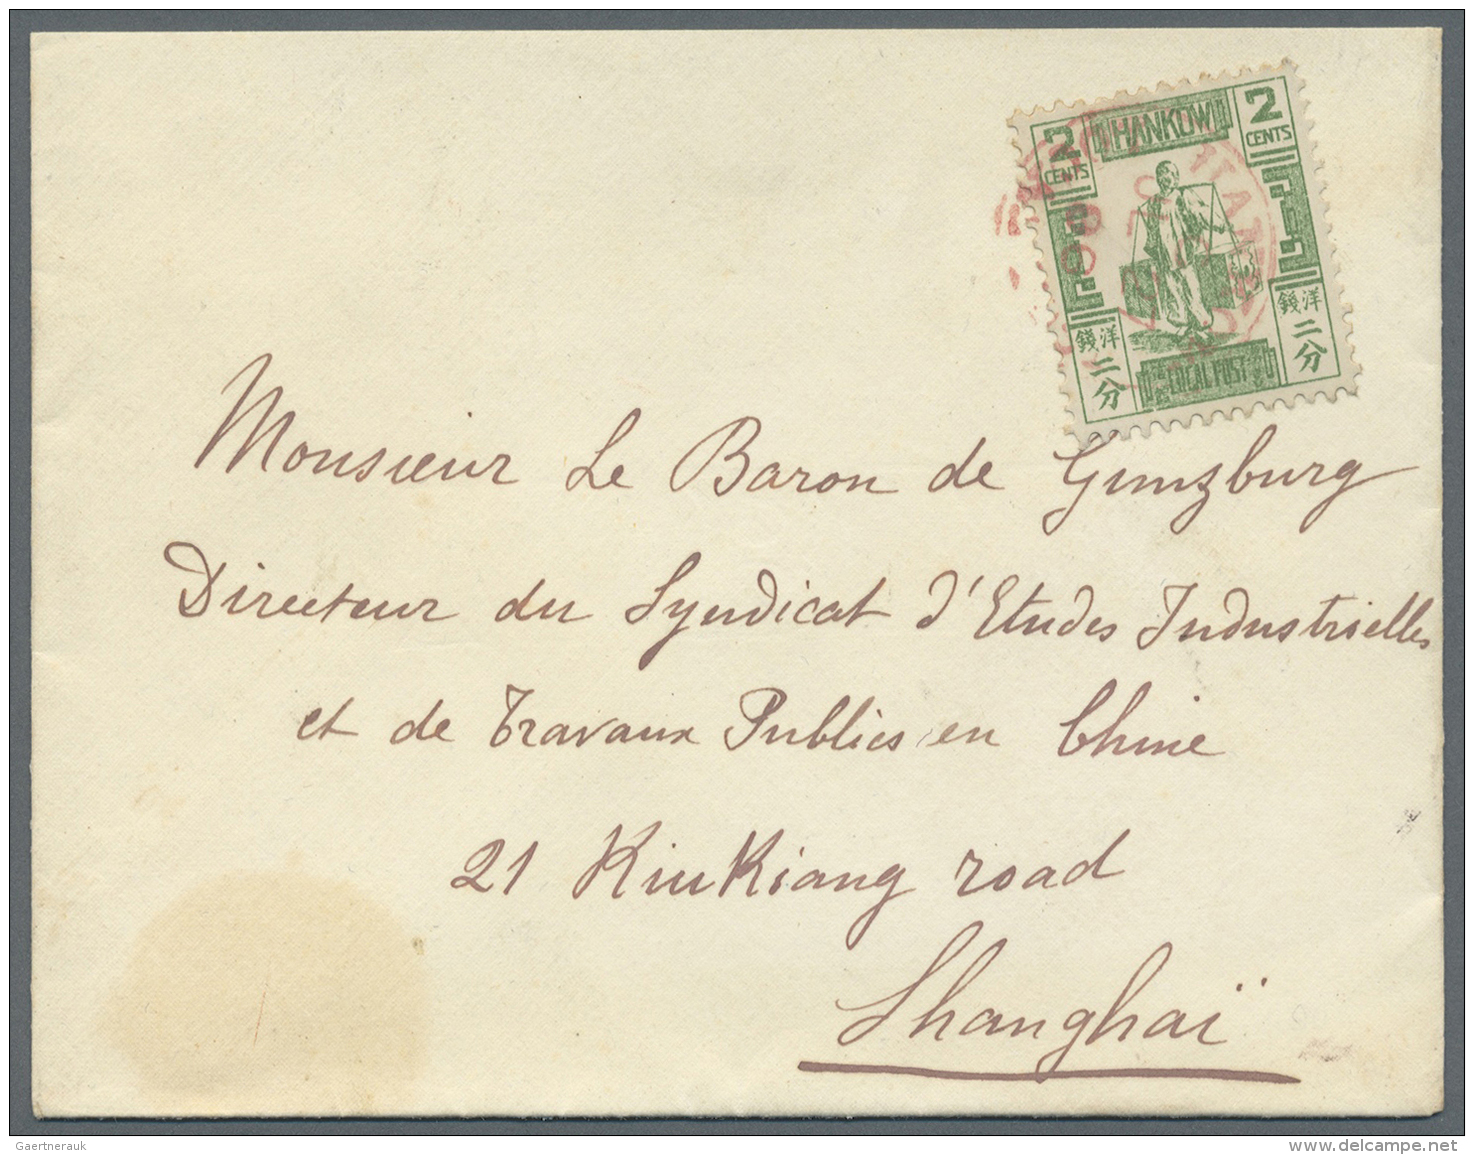 2 HANKOW 2
CENTS CENTS
錢洋 錢洋
二分 二分
LOCAL POST
Monsieur Le Baron de Gunzburg
Directeur du Syndicat d'Etudes Industrielles
et de Travaux Publics en Chine
21 KiuKiang road
Shanghaï
Gaertnerauk
www.delcampe.net